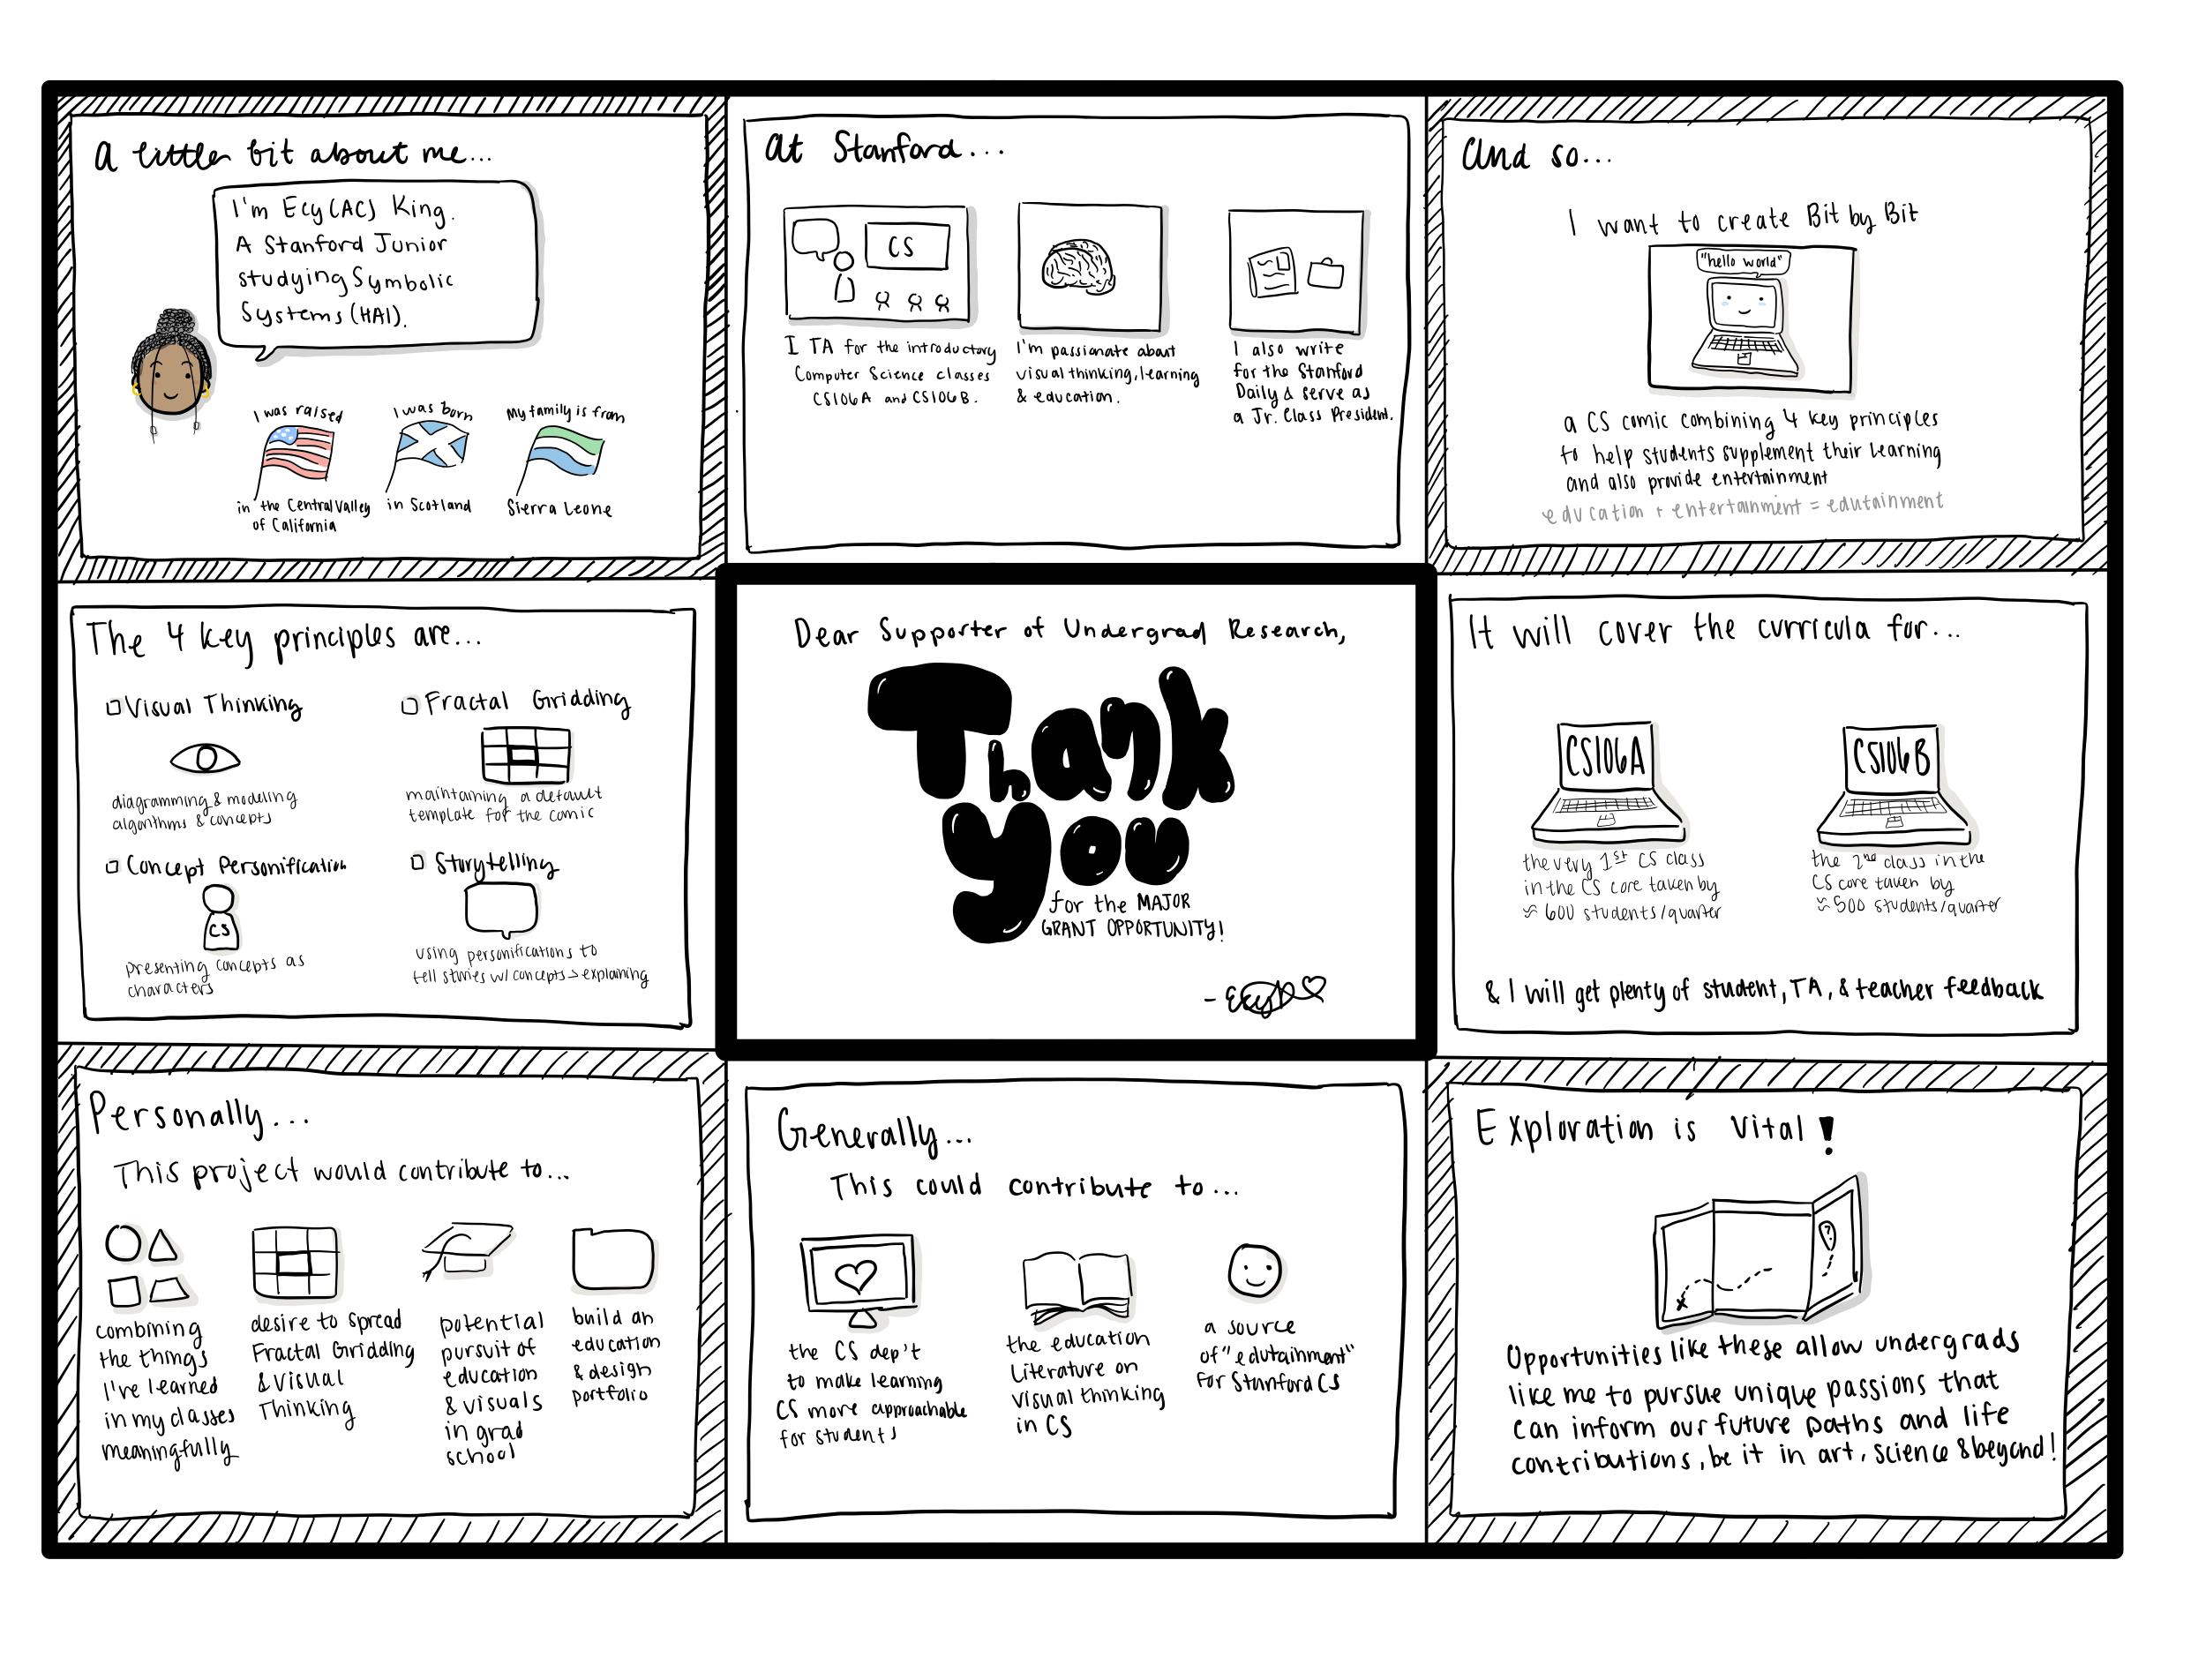 A little bit about me...
I'm Ecy (AC) King.
A Stanford Junior
studying Symbolic
Systems (HAI).
I was raised
in the Central Valley
of California
I was born
in Scotland
My family is from
Sierra Leone
at Stanford...
CS
I TA for the introductory
Computer Science classes
CS106A and CS106B.
I'm passionate about
visual thinking, learning
& education.
I also write
for the Stanford
Daily & serve as
a Jr. Class President.
And so...
I want to create Bit by Bit
"hello world"
a CS comic combining 4 key principles
to help students supplement their learning
and also provide entertainment
education + entertainment = edutainment
The 4 key principles are...
Visual Thinking
diagramming & modeling
algorithms & concepts
Fractal Gridding
maintaining a default
template for the comic
Concept Personification
CS
presenting concepts as
characters
Storytelling
using personifications to
tell stories w/ concepts -> explaining
Dear Supporter of Undergrad Research,
Thank
you
for the MAJOR
GRANT OPPORTUNITY!
It will cover the curricula for...
CS106A
the very 1st CS class
in the CS core taken by
≈ 600 students/quarter
CS106B
the 2nd class in the
CS core taken by
≈ 500 students/quarter
& I will get plenty of student, TA, & teacher feedback
Personally...
This project would contribute to...
combining
the things
I've learned
in my classes
meaningfully
desire to spread
Fractal Gridding
& Visual
Thinking
potential
pursuit of
education
& visuals
in grad
school
build an
education
& design
portfolio
Generally...
This could contribute to...
the CS dep't
to make learning
CS more approachable
for students
the education
literature on
visual thinking
in CS
a source
of "edutainment"
for Stanford CS
Exploration is vital!
x
?
Opportunities like these allow undergrads
like me to pursue unique passions that
can inform our future paths and life
contributions, be it in art, science & beyond!